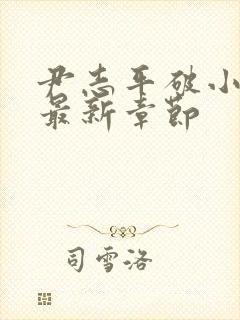 尹志平破小
最新章节
司雪洛